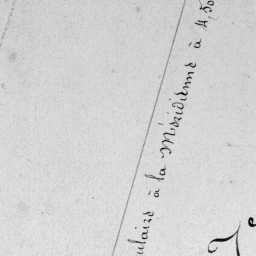 ulaire à la Méridienne à 4,50